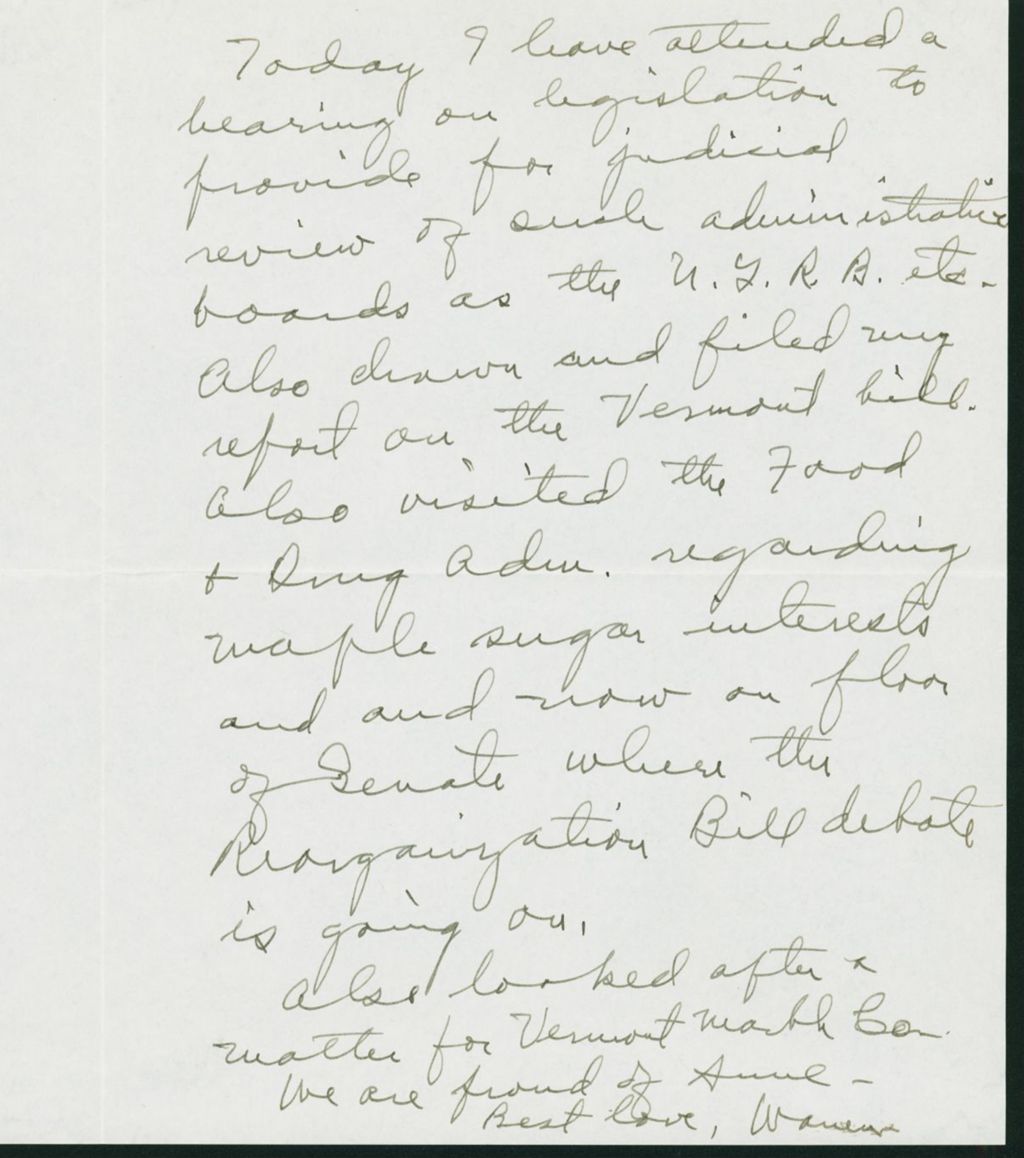 Today I have attended a
hearing on legislation to
provide for judicial
review of such administrative
boards as the N. L. R. B. etc.
Also drawn and filed my
report on the Vermont bill.
Also visited the Food
+ Drug Adm. regarding
maple sugar interests
and and now on floor
of Senate where the
Reorganization Bill debate
is going on.
Also looked after a
matter for Vermont Marble Co.
We are proud of Anne -
Best love, Warren